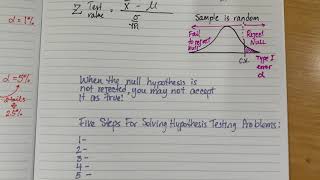 α = 1%
α = 5%
2 tails
2.5%
Z Test value = x̄ - μ
σ
√n
Sample is random
Fail to reject null
Reject Null
C.V.
Type I error
α
When the null hypothesis is
not rejected, you may not accept
it as true!
Five Steps For Solving Hypothesis Testing Problems:
1-
2-
3-
4-
5-